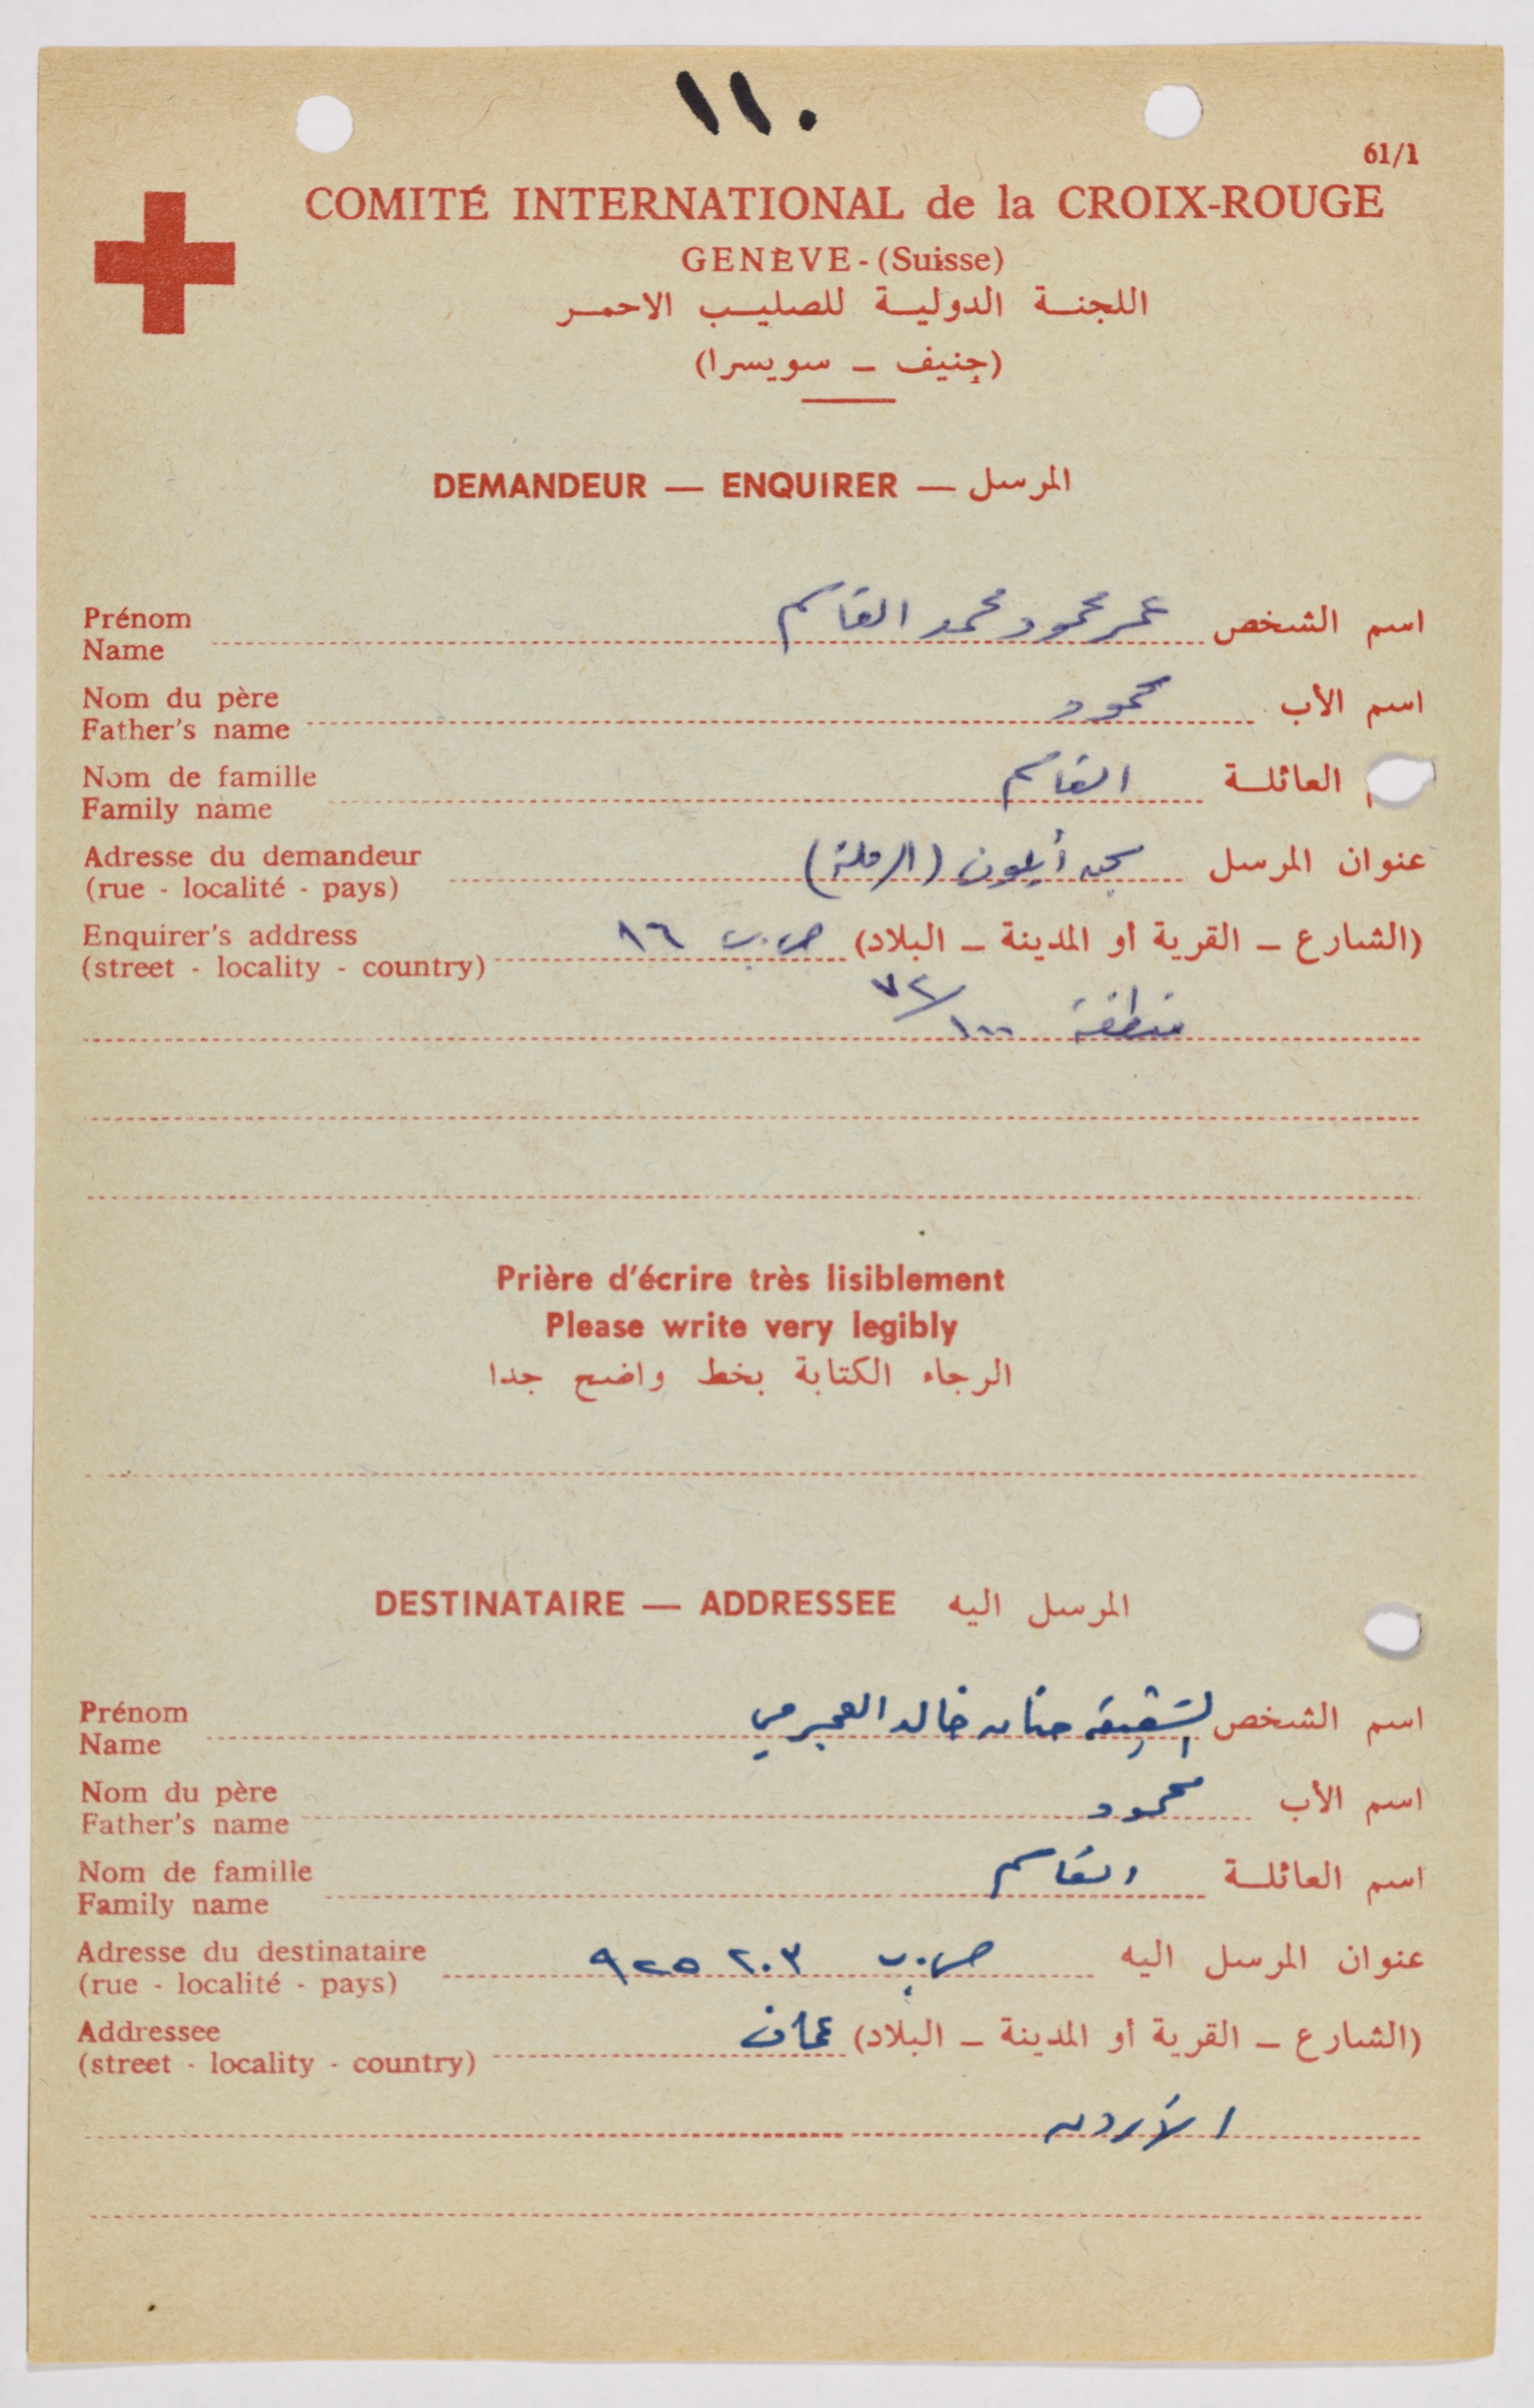 ١١٠
61/1
COMITÉ INTERNATIONAL de la CROIX-ROUGE
GENÈVE - (Suisse)
اللجنة الدولية للصليب الاحمر
(جنيف – سويسرا)
DEMANDEUR — ENQUIRER — المرسل
Prénom
Name
اسم الشخص عمر محمود محمد القاسم
Nom du père
Father's name
اسم الأب محمود
Nom de famille
Family name
العائلة القاسم
Adresse du demandeur
(rue - localité - pays)
عنوان المرسل سجن أيلون (الرملة)
Enquirer's address
(street - locality - country)
(الشارع – القرية أو المدينة – البلاد) ص.ب ١٦
منطقة ٧٢/١٠٠
Prière d'écrire très lisiblement
Please write very legibly
الرجاء الكتابة بخط واضح جدا
DESTINATAIRE — ADDRESSEE المرسل اليه
Prénom
Name
اسم الشخص الشقيقة حنان خالد العجرمي
Nom du père
Father's name
اسم الأب محمود
Nom de famille
Family name
اسم العائلة القاسم
Adresse du destinataire
(rue - localité - pays)
عنوان المرسل اليه ص.ب ٩٢٥٢٠٣
Addressee
(street - locality - country)
(الشارع – القرية أو المدينة – البلاد) عمان
الأردن